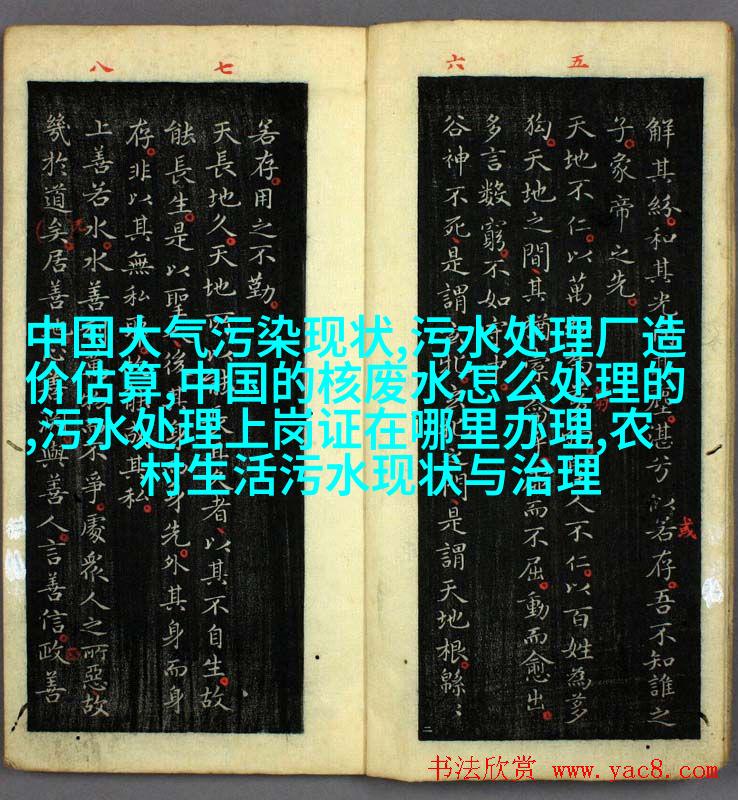 五
六
解其紛和其光塵湛兮似若存吾不知誰之
或
子象帝之先
天地不仁以萬人不仁以百姓為芻
狗天地之間其而不屈動而愈出
多言數窮不如
谷神不死是謂門是謂天地根緜〻
七
八
若存用之不勤
天長地久天地者以其不自生故
能長生是以聖後其身先外其身而身
存非以其無私其私
上善若水水善不爭處衆人之所惡故
幾於道矣居善與善人言善信政善
中国大气污染现状,污水处理厂造
价估算,中国的核废水怎么处理的
,污水处理上岗证在哪里办理,农
村生活污水现状与治理
书法欣赏 www.yac8.com